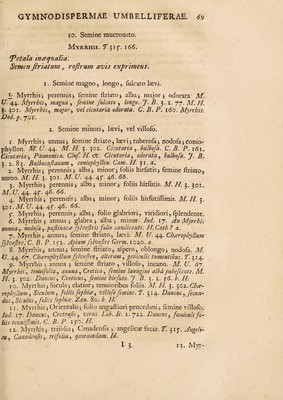 GYMNODISPERMAE UMBELLIFERAE. 69
10. Semine mucronato.
MYRRHIS. T 315. 166.
Petala inæqualia.
Semen striatum, rostrum avis exprimens.
1. Semine magno, longo, sulcato lævi.
1. Myrrhis, perennis; semine striato, alba, major; odorata M.
U. 44. Myrrhis, magno, semine sulcato, longo. J. B. 3. 2. 77. M. H.
3. 301. Myrrhis, major, vel cicutaria odorata. C. B. P. 160. Myrrhis.
Dod. p. 701.
2. Semine minori, lævi, vel villoso.
1. Myrrhis; annua; semine striato, lævi; tuberosa; nodosa; conio-
phyllon. M. U. 44. M. H. 3. 302. Cicutaria, bulbosa. C. B. P. 161.
Cicutaria, Pannonica. Clus. H. cc. Cicutaria, odorata, bulbosa. J. B.
3. 2. 183. Bulbocastanum, coniophyllon Cam. H. 31. a.
2. Myrrhis; perennis; alba; minor; foliis hirsutis; semine striato,
aureo. M. H. 3. 301. M. U. 44. 45. 46. 66.
3. Myrrhis; perennis; alba; minor; foliis hirsutis. M. H. 3. 301.
M. U. 44. 45. 46. 66.
4. Myrrhis; perennis; alba; minor; foliis hirsutissimis M. H. 3.
301. M. U. 44. 45. 46. 66.
5. Myrrhis; perennis; alba; folio glabriori, viridiori, splendente.
6. Myrrhis; annua; glabra; alba; minor. Ind. 17. An Myrrhis
annua, nodosa, pastinacæ sylvestris folio candicante. H. Cath?
7. Myrrhis; annua; semine striato, lævi. M. U. 44. Chærophyllum
sylvestre. C. B. P. 152. Apium sylvestre Germ. 1020. 4.
8. Myrrhis; annua; semine striato, aspero, oblongo; nodosa. M.
U. 44. 67. Chærophyllum sylvestre, alterum, geniculis tumentibus. T. 314.
9. Myrrhis; annua; semine striato, villoso, incano. M. U. 67.
Myrrhis, tenuifolia, annua, Cretica, semine lanugine albâ pubescente. M.
H. 3. 302. Daucus, Creticus, semine hirsuto. J. B. 3. 2. 56. b. H.
10. Myrrhis; Sicula; elatior; tenuioribus foliis. M. H. 3. 302. Chæ-
rophyllum, Siculum, foliis sophiæ, villoso semine. T. 314. Daucus,
Siculus, foliis sophiæ. Zan. 80. 6. H.
11. Myrrhis; Orientalis; folio angustiori peucedani; semine villoso.
Ind. 17. Daucus, Cretensis, verus. Lob. Ic. 1. 722. Daucus, fœniculi fo-
liis tenuissimis. C. B. P. 150. H.
12. Myrrhis; trifolia; Canadensis; angelicæ facie. T. 315. Angeli-
ca, Canadensis, trifolia, quorumdam. Id.
I 3 13. Myr-